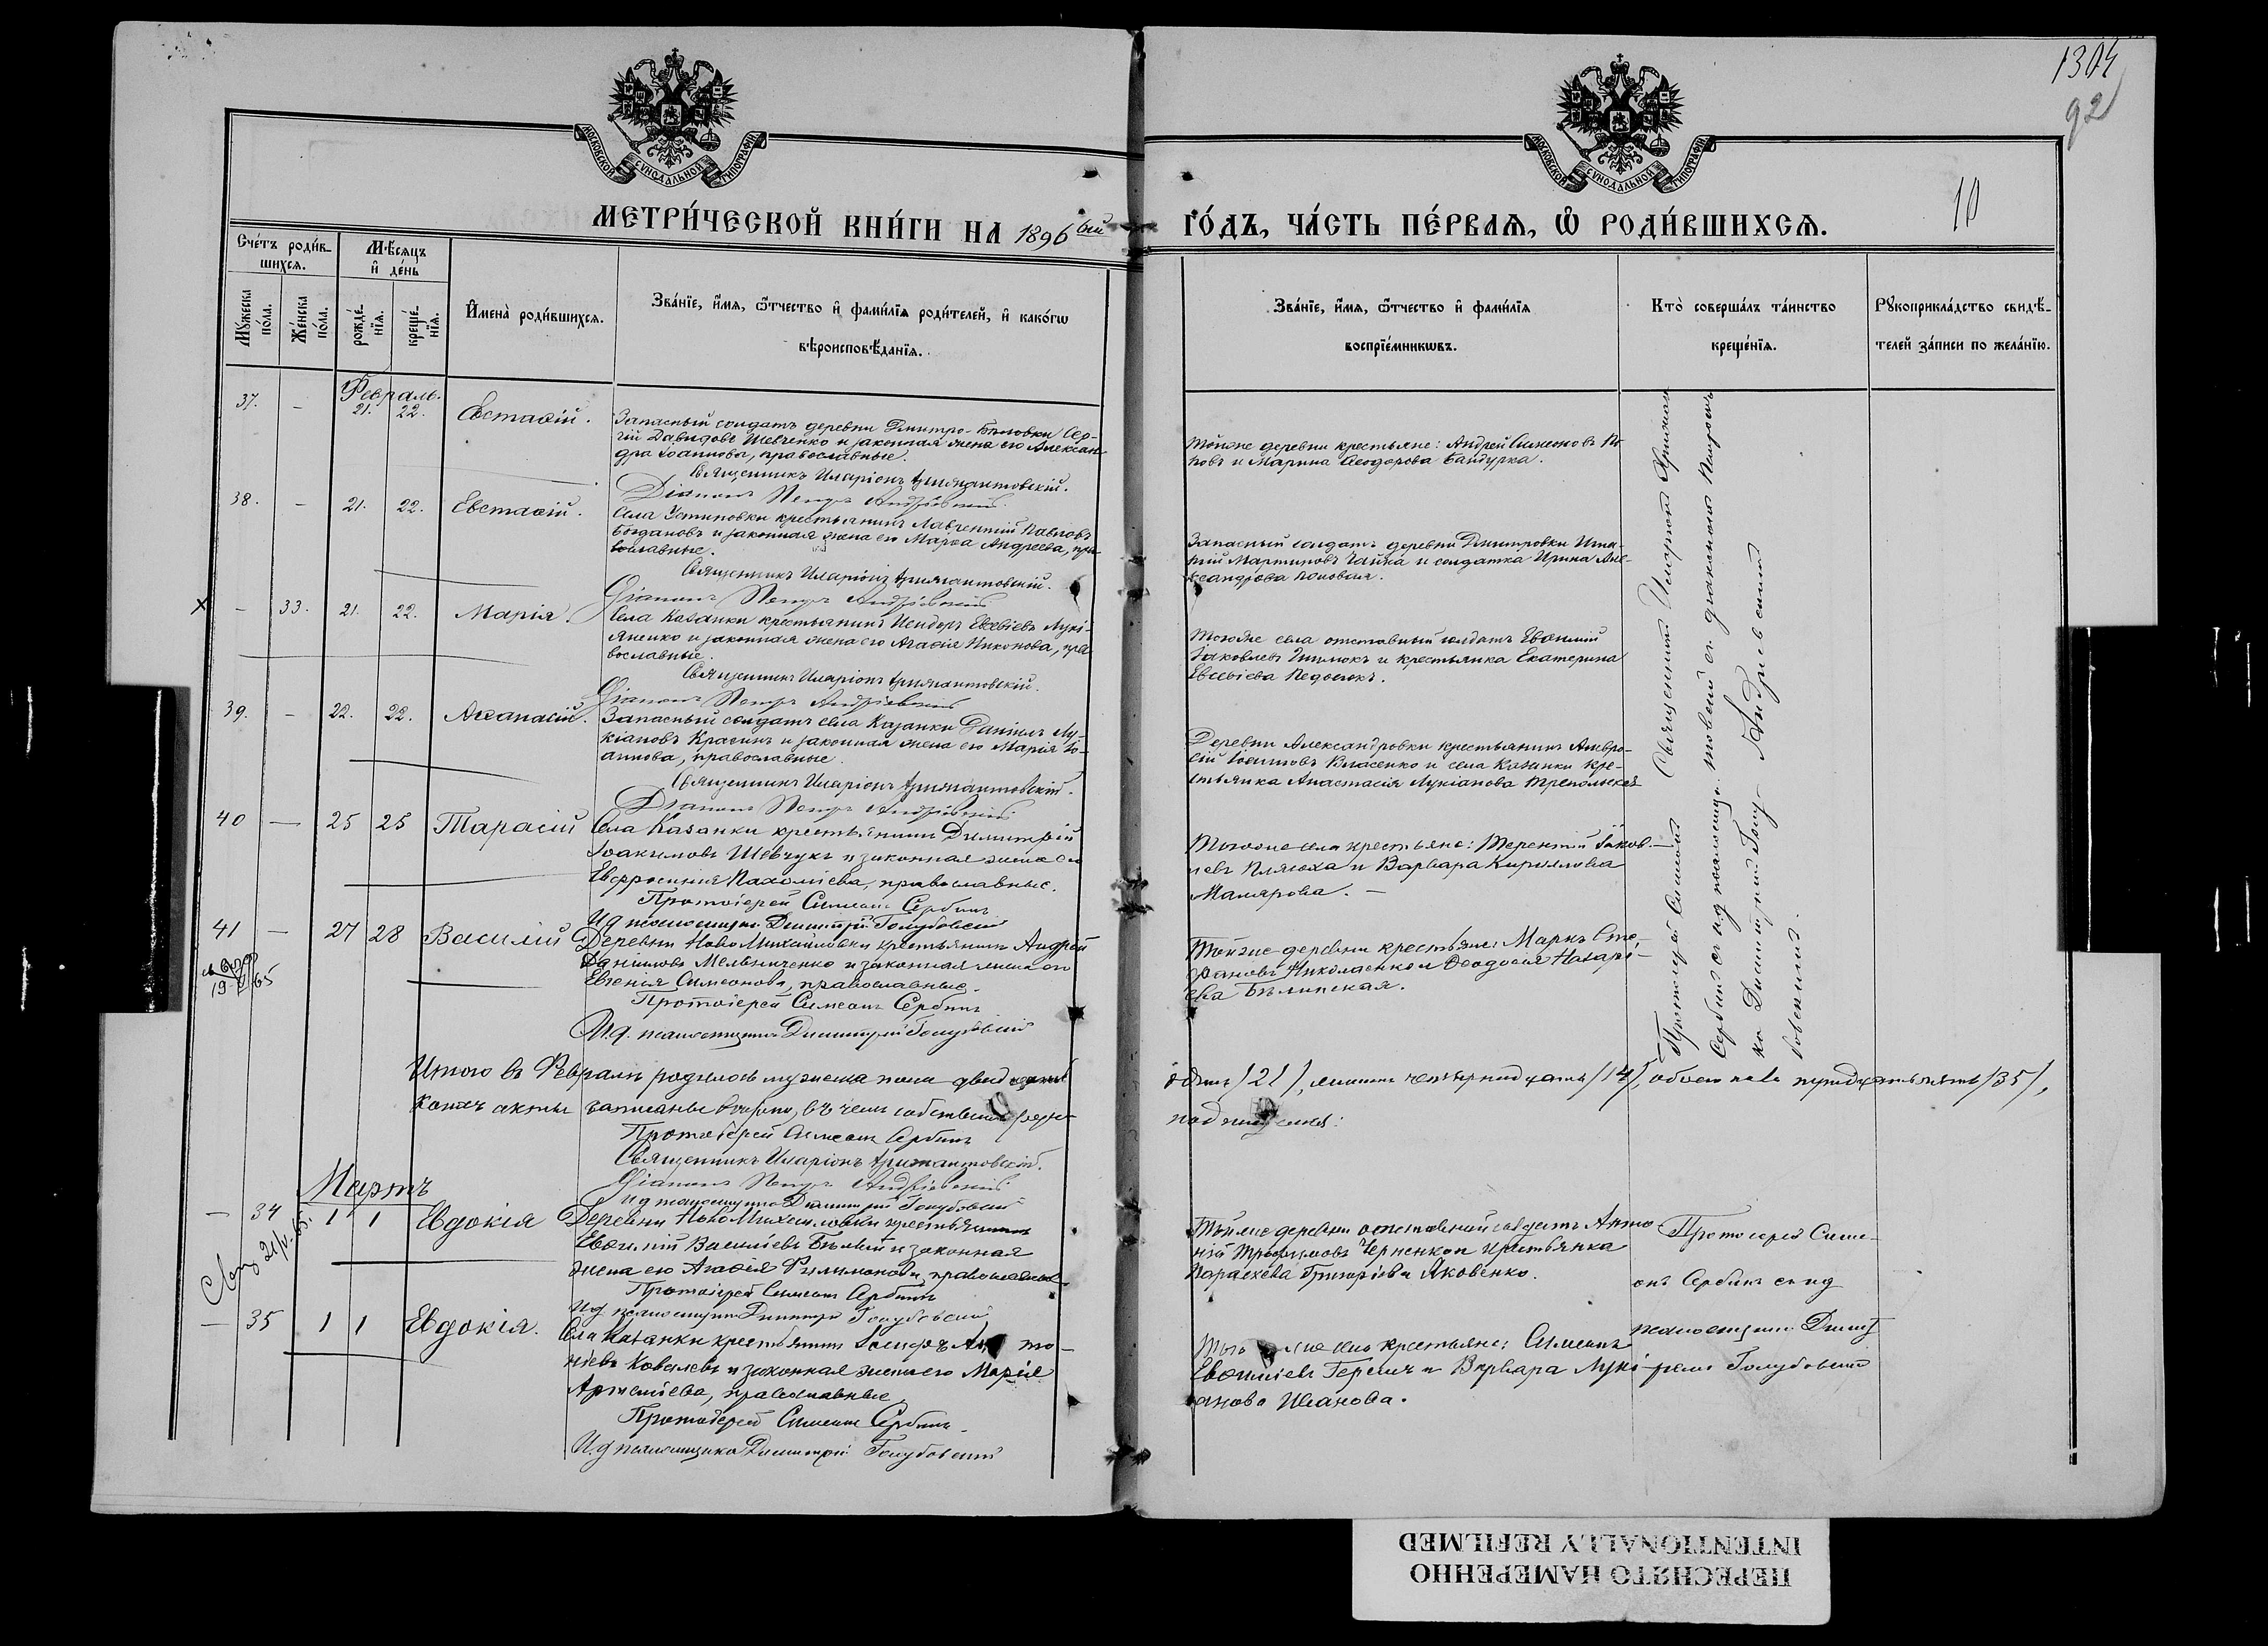 1304
92
10
МОСКОВСКОЙ СѴНОДАЛЬНОЙ ТИПОГРАФІИ
МОСКОВСКОЙ СѴНОДАЛЬНОЙ ТИПОГРАФІИ
МЕТРИ́ЧЕСКОЙ КНИ́ГИ НА 1896 ый ГО́ДЪ, ЧА́СТЬ ПЕ́РВАѦ, Ѡ РОДИ́ВШИХСѦ.
Сче́тъ роди́в-
шихсѧ.
Мꙋ́жеска по́ла.
Же́нска по́ла.
Мѣ́сѧцъ
и҆ де́нь
рожде́-
нїѧ.
креще́-
нїѧ.
И҆мена̀ роди́вшихсѧ.
Зва́нїе, и҆́мѧ, ѻ҆́тчество и҆ фами́лїѧ роди́телей, и҆ како́гѡ
вѣроисповѣ́данїѧ.
Зва́нїе, и҆́мѧ, ѻ҆́тчество и҆ фами́лїѧ
воспрїе́мникѡвъ.
Кто̀ соверша́лъ та́инство
креще́нїѧ.
Рꙋкоприкла́дство свидѣ́-
телей за́писи по жела́нїю.
Февраль.
37. - 21. 22. Евстаѳій.
Запасный солдатъ деревни Дмитро-Бѣловки Сер-
гій Давидовъ Шевченко и законная жена его Алексан-
дра Іоаннова, православные.
Священникъ Иларіонъ
Діаконъ Петръ Андріевскій
Тойже деревни крестьяне: Андрей Симеоновъ По-
повъ и Марина Ѳеодорова Бандурка.
38. - 21. 22. Евстаѳій.
Села Устиновки крестьянинъ Лаврентій Павловъ
Богдановъ и законная жена его Марѳа Андреева, пра-
вославные.
Священникъ Иларіонъ
Діаконъ Петръ Андріевскій
Запасный солдатъ деревни Дмитровки Игна-
тій Мартиновъ Чайка и солдатка Ирина Але-
ксандрова Поповая.
х - 33. 21. 22. Марія.
Села Казанки крестьянинъ Исидоръ Евсевіевъ Лукі-
яненко и законная жена его Агаѳія Никонова, пра-
вославные.
Священникъ Иларіонъ
Діаконъ Петръ Андріевскій
Тогоже села отставный солдатъ Евѳимій
Іаковлевъ и крестьянка Екатерина
Евсевіева
39. - 22. 22. Аѳанасій.
Запасный солдатъ села Казанки Даніилъ Лу-
кіановъ Красинъ и законная жена его Марія Іо-
аннова, православные.
Священникъ Иларіонъ
Діаконъ Петръ Андріевскій
Деревни Александровки крестьянинъ Амвро-
сій Іосифовъ Власенко и села Казанки кре-
стьянка Анастасія Лукіанова
40 — 25 25 Тарасій
Села Казанки крестьянинъ Димитрій
Іоакимовъ Шевчукъ и законная жена его
Евфросинія Пахоміева, православные.
Протоіерей Симеонъ Сербинъ
И д псаломщика Димитрій Голубовскій
Тогоже села крестьяне: Терентій Іаков-
левъ Плясоха и Варвара Кириллова
Малярова. —
41 — 27 28 Василій
19 65
Деревни НовоМихайловки крестьянинъ Андрей
Даніиловъ Мельниченко и законная жена его
Евгенія Симеонова, православные.
Протоіерей Симеонъ Сербинъ
И.д. псаломщика Димитрій Голубовскій
Тойже деревни крестьяне: Маркъ Сте-
фановъ Николаенко и Ѳеодосія Назарі-
ева Бѣлинская.
Священникъ Иларіонъ
съ діакономъ Петромъ
Андріевскимъ
Протоіерей Симеонъ
Сербинъ съ и д псаломщи-
ка Димитріемъ Голу-
бовскимъ.
Итого въ Февралѣ родилось мужеска пола двадцать
одинъ /21/, женска четырнадцать /14/, обоего пола тридцать пять /35/,
акты записаны вѣрно, въ чемъ собственноручно
подписуемся:
Протоіерей Симеонъ Сербинъ
Священникъ Иларіонъ
Діаконъ Петръ Андріевскій
И д псаломщика Димитрій Голубовскій
Мартъ
— 34 1 1 Евдокія
Деревни НовоМихайловки крестьянинъ
Евѳимій Василіевъ Бѣлый и законная
жена его Агаѳія Филимонова, православные
Протоіерей Симеонъ Сербинъ
И д псаломщика Димитрій Голубовскій
Тойже деревни отставный солдатъ Анто-
ній Трофимовъ Черненко и крестьянка
Параскева Григоріева Яковенко.
Протоіерей Симе-
онъ Сербинъ съ и д
псаломщика Димит-
ріемъ Голубовскимъ
— 35 1 1 Евдокія.
Села Казанки крестьянинъ Анто-
ніевъ Ковалевъ и законная жена его Марія
Артеміева, православные
Протоіерей Симеонъ Сербинъ.
И.д псаломщика Димитрій Голубовскій
Того же села крестьяне: Симеонъ
Евѳиміевъ и Варвара Лукі-
анова Иванова.
ПЕРЕСНЯТО НАМЕРЕННО
INTENTIONALLY REFILMED